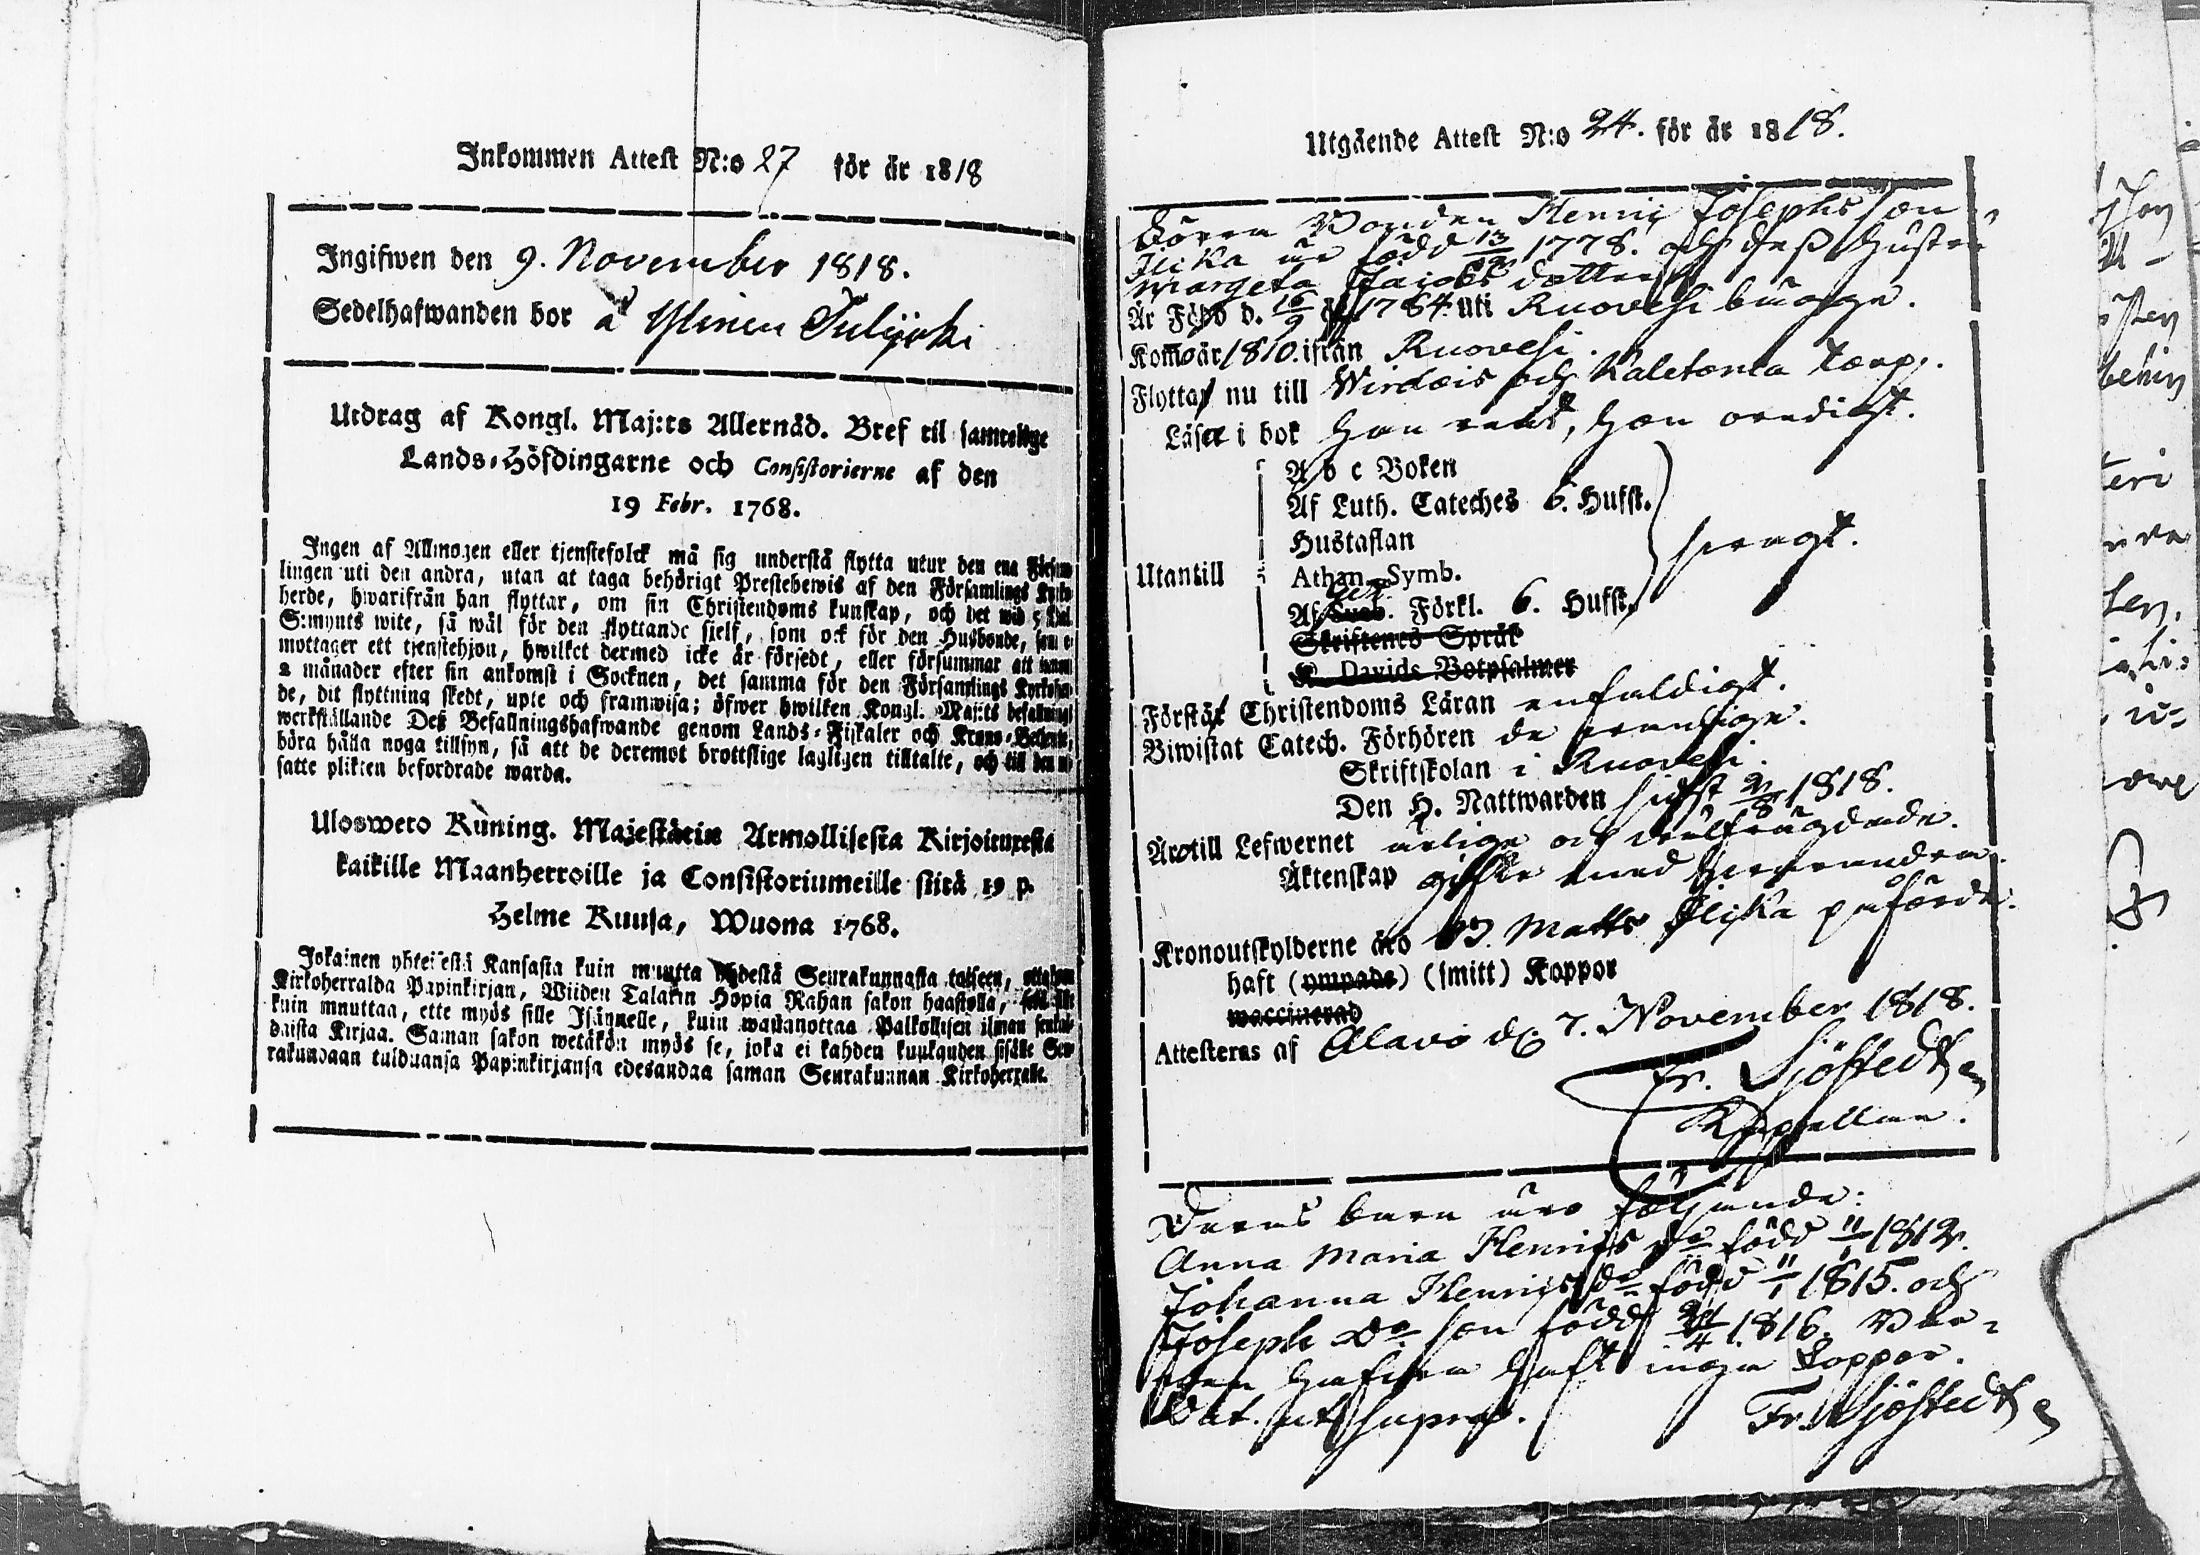 Inkommen Attest N:o 27 för år 1818
Ingifwen den 9. November 1818.
Sedelhafwanden bor å Ylinen Tulijoki
Utdrag af Kongl. Maj:ts Allernåd. Bref til samtelige
Lands-Höfdingarne och Consistorierne af den
19 Febr. 1768.
Ingen af Allmogen eller tjenstefolck må sig understå flytta utur den ena Försam-
lingen uti den andra, utan at taga behörigt Prestebewis af den Församlings Kyrko-
herde, hwarifrån han flyttar, om sin Christendoms kunskap, och det wid 5 Dal.
S:mynts wite, så wäl för den flyttande sjelf, som ock för den Husbonde, som e
mottager ett tjenstehjon, hwilket dermed icke är försedt, eller försummar att innom
2 månader efter sin ankomst i Socknen, det samma för den Församlings Kyrkoher-
de, dit flyttning skedt, upte och framwisa; öfwer hwilken Kongl. Maj:ts befallnings
werkställande Deß Befallningshafwande genom Lands-Fiskaler och Krono-Betjente,
böra hålla noga tillsyn, så att de deremot brottslige lagligen tilltalte, och till den ut-
satte plikten befordrade warda.
Uloswero Kuning. Majestätin Armollisesta Kirjoituxesta
kaikille Maanherroille ja Consistoriumeille siitä 19 p.
Helme Kuusa, Wuona 1768.
Jokainen yhteisestä Kansasta kuin muutta yhdestä Seurakunnasta toiseen, ottakoon
Kirkoherralda Papinkirjan, Wiiden Talarin Hopia Rahan sakon haastolla, sekä sille
kuin muuttaa, ette myös sille Isännelle, kuin wastanottaa Palkollisen ilman senkal-
daista Kirjaa. Saman sakon wetäkön myös se, joka ei kahden kuukauden sisälle Seu-
rakundaan tulduansa Papinkirjansa edesandaa saman Seurakunnan Kirkoherralle.
Utgående Attest N:o 24. för år 1818.
Bonden Henric Josephs son
Ilika är född 13/12 1778. och deß hustru
Margeta Jacobs dotter
Är Född d. 16/9 1784. uti Ruovesi begge.
Kom år 1810. ifrån Ruovesi.
Flytta nu till Wirdois och Kaletoma torp.
Läser i bok han rent, hon ordigt.
Utantill
A b c Boken
Af Luth. Cateches 6. Hufst.
Hustaflan
Athan. Symb.
Af Sueb. Förkl. 6. Hufst.
Skriftenes Språk
K. Davids Botpsalmer
swagt.
Förstår Christendoms Läran enfaldigt.
Biwistat Catech. Förhören de
Skriftskolan i Ruovesi.
Den H. Nattwarden sidst 2/8 1818.
Äro till Lefwernet ärlige och wälfrägdade.
Äktenskap gifte med hwarandra.
Kronoutskylderne äro Matts Ilika påförde.
haft (ympade) (smitt) Koppor
waccinerad
Attesteras af Alavo d. 7. November 1818.
Fr. Sjöstedt
Kapellan.
Deras barn äro följande:
Anna Maria Henrics dr född 11/1 1812.
Johanna Henrics dr född 11/1 1815. och
Joseph Do son född 24/4 1816. Bar-
nen hafwa haft inga koppor.
Dat. ut supra.
Fr. Sjöstedt